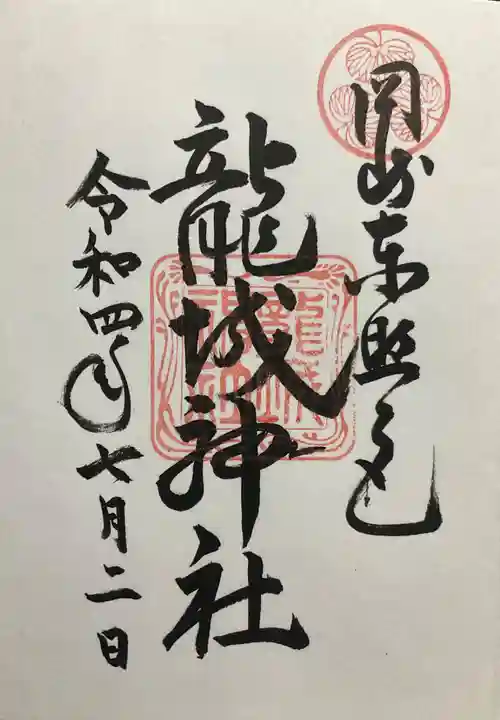 岡崎東照宮
龍城神社
令和四年七月二日
龍城
神社